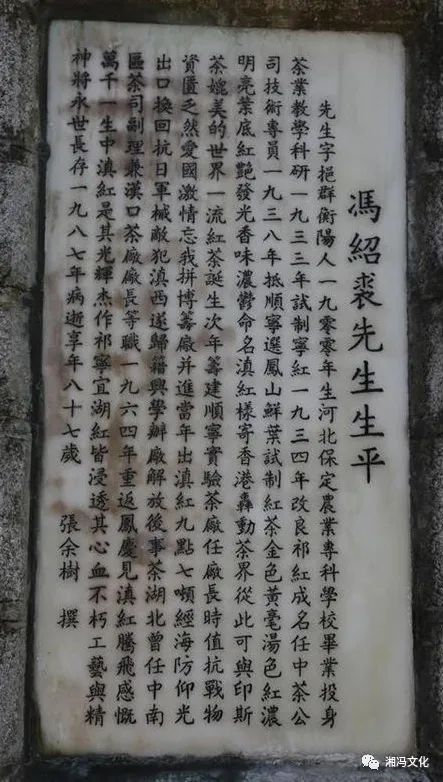 馮紹裘先生生平
先生字挹群衡陽人一九零零年生河北保定農業專科學校畢業投身
茶業教學科研一九三三年試制寧紅一九三四年改良祁紅成名任中茶公
司技術專員一九三八年抵順寧選鳳山鮮葉試制紅茶金色黃毫湯色紅濃
明亮葉底紅艷發光香味濃鬱命名滇紅樣寄香港轟動茶界從此可與印斯
茶媲美的世界一流紅茶誕生次年籌建順寧實驗茶廠任廠長時值抗戰物
資匱乏然愛國激情忘我拼博籌廠并進當年出滇紅九點七頓經海防仰光
出口換回抗日軍械敵犯滇西遂歸籍興學辦廠解放後事茶湖北曾任中南
區茶司副理兼漢口茶廠廠長等職一九六四年重返鳳慶見滇紅騰飛感慨
萬千一生中滇紅是其光輝杰作祁寧宜湖紅皆浸透其心血不朽工藝與精
神將永世長存一九八七年病逝享年八十七歲 張余樹 撰
湘冯文化